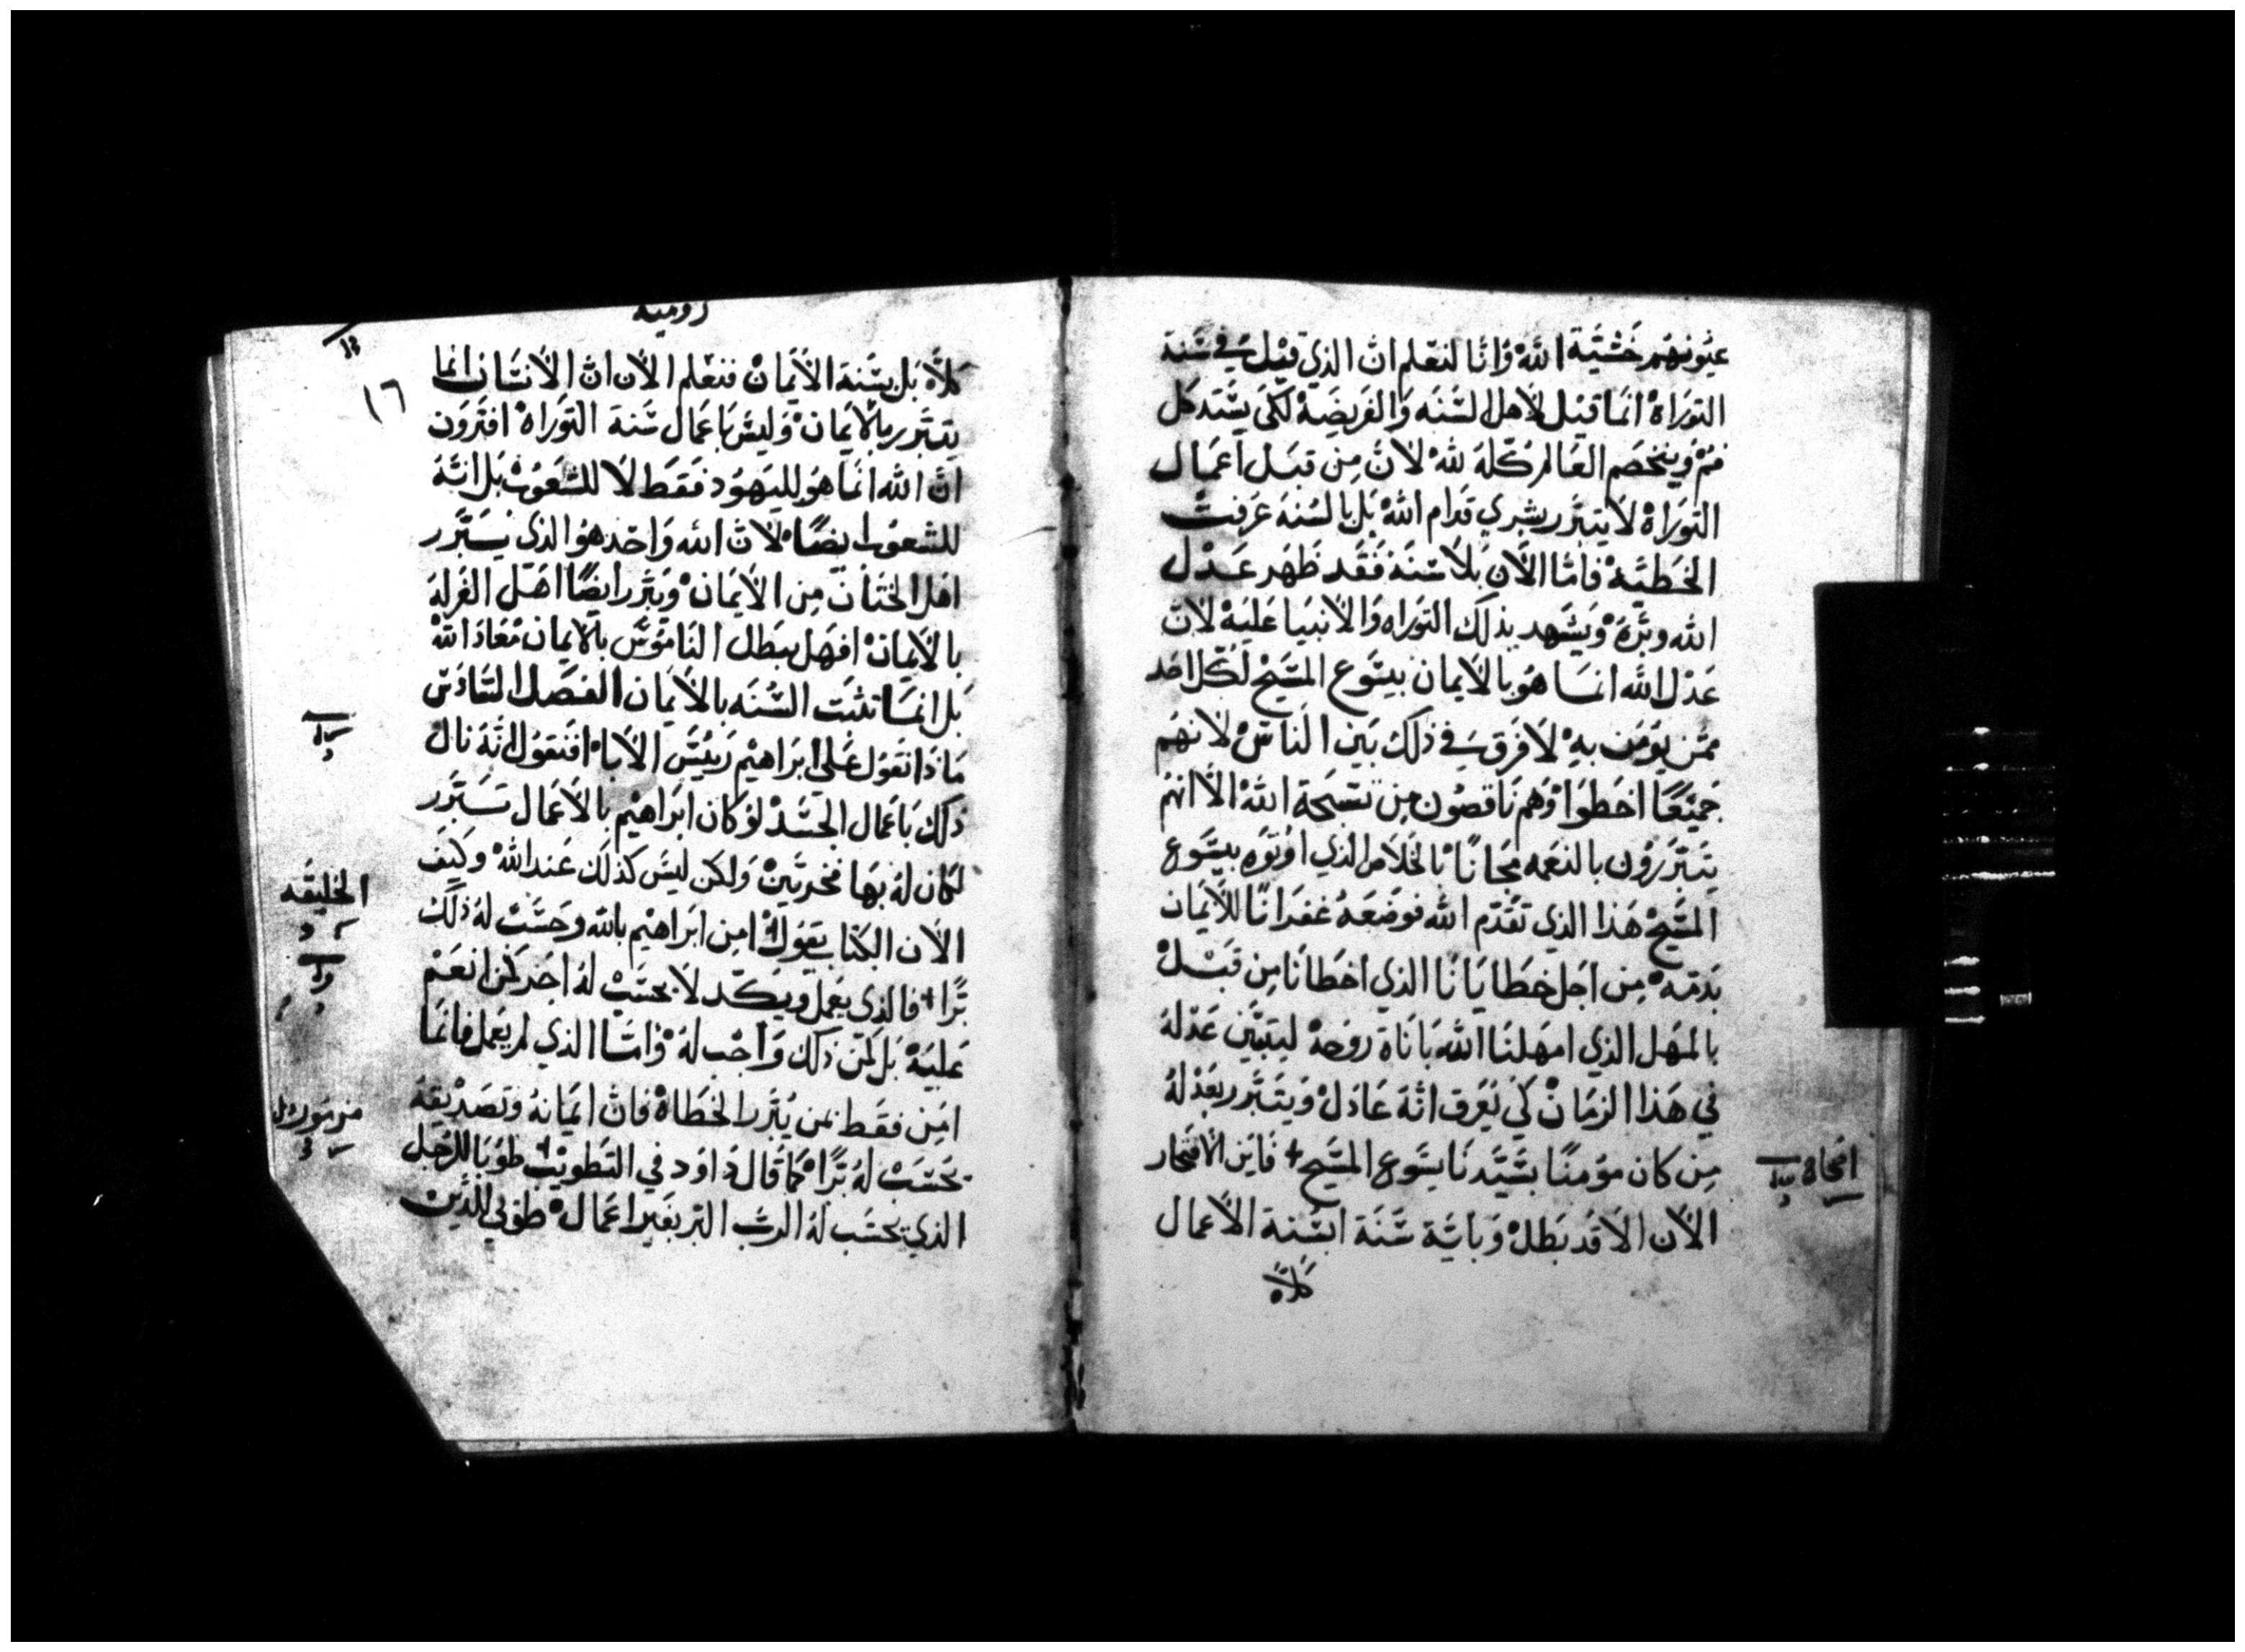 عيونهم خشية الله وانا لنعلم ان الذي قيل في سنة
التوراة انما قيل لاهل السنه والفريضة لكي يستد كل
فم ويخصم العالم كله لله لان من قبل اعمال
التوراة لا يتبرر بشري قدام الله بل بالسنه عرفت
الخطيه فاما الان بلا سنه فقد ظهر عدل
الله وبره ويشهد بذلك التوراه والانبيا عليه لان
عدل الله انما هو بالايمان بيسوع المسيح لكل احد
ممن يومن به لا فرق في ذلك بين الناس لانهم
جميعا اخطوا وهم ناقصون من تسبحة الله الا انهم
يتبررون بالنعمه مجانا بالخلاص الذي اوتوه بيسوع
المسيح هذا الذي تقدم الله فوضعه غفرانا للايمان
بدمه من اجل خطايانا الذي اخطانا من قبل
بالمهل الذي امهلنا الله باناة روحه ليتبين عدله
في هذا الزمان كي يعرف انه عادل ويتبرر بعدله
من كان مومنا بسيدنا يسوع المسيح + فاين الافتخار
الان الا قد بطل وباية سنة ابسنة الاعمال
كلا
روميه
١٦
كلا بل بسنة الايمان فنعلم الان ان الانسان انما
يتبرر بالايمان وليس باعمال سنة التوراة افترون
ان الله انما هو لليهود فقط لا للشعوب بل انه
للشعوب ايضا لان الله واحد هو الذي يبرر
اهل الختان من الايمان ويبرر ايضا اهل الغرله
بالايمان افهل يبطل الناموس بالايمان معاذ الله
بل انما نثبت السنه بالايمان الفصل السادس
ماذا نقول على ابراهيم رييس الابا افنقول انه نال
ذلك باعمال الجسد لو كان ابراهيم بالاعمال تبرر
لكان له بها فخر ولكن ليس كذلك عند الله وكيف
الان الكتاب يقول امن ابراهيم بالله وحسب له ذلك
برا + فالذي يعمل ويكد لا يحسب له اجر كمن انعم
عليه بل كمن ذلك واجب له واما الذي لم يعمل فانما
امن فقط بمن يبرر الخطاة فان ايمانه وتصديقه
يحسب له برا كما قال داود في التطويب طوبا للرجل
الذي يحسب له الرب البر بغير اعمال طوبى للذين
الخليقه
مزمور